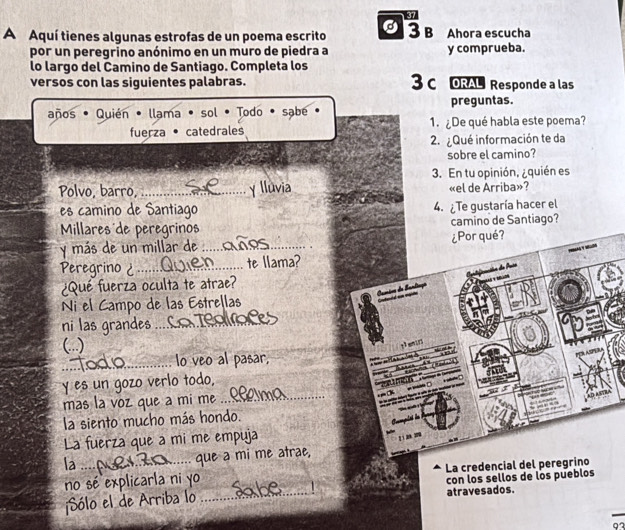 A Aquí tienes algunas estrofas de un poema escrito
por un peregrino anónimo en un muro de piedra a
lo largo del Camino de Santiago. Completa los
versos con las siguientes palabras.
años • Quién • llama • sol • Todo • sabe •
fuerza • catedrales
Polvo, barro, sol y lluvia
es camino de Santiago
Millares de peregrinos
y más de un millar de años.
Peregrino ¿ Quien te llama?
¿Qué fuerza oculta te atrae?
Ni el Campo de las Estrellas
ni las grandes catedrales
(...)
Todo lo veo al pasar,
y es un gozo verlo todo,
mas la voz que a mí me llama
la siento mucho más hondo.
La fuerza que a mí me empuja
la fuerza que a mí me atrae,
no sé explicarla ni yo
¡Sólo el de Arriba lo Sabe!
37
3 B Ahora escucha
y comprueba.
3 C ORAL Responde a las
preguntas.
1. ¿De qué habla este poema?
2. ¿Qué información te da
sobre el camino?
3. En tu opinión, ¿quién es
«el de Arriba»?
4. ¿Te gustaría hacer el
camino de Santiago?
¿Por qué?
Camino de Santiago
Certificación de Paso
PER ASPERA
AD ASTRA
La credencial del peregrino
con los sellos de los pueblos
atravesados.
93